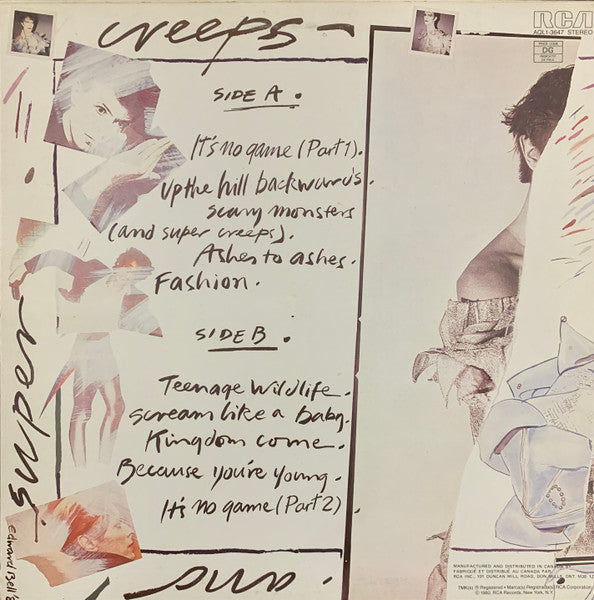 creeps
RCA
AQL1-3647 STEREO
DG
SIDE A.
It's no game (Part 1).
Up the hill backwards.
scary monsters
(and super creeps).
Ashes to ashes.
Fashion.
SIDE B.
Teenage Wildlife.
Scream like a baby.
Kingdom come.
Because you're young.
It's no game (Part 2).
super
and
Edward Bell '8
MANUFACTURED AND DISTRIBUTED IN CANADA
FABRIQUÉ ET DISTRIBUÉ AU CANADA PAR
RCA INC., 101 DUNCAN MILL ROAD, DON MILLS, ONT. M3B 1Z
TMK(s) ® Registered • Marca(s) Registrada(s) RCA Corporation
© 1980, RCA Records, New York, N.Y.